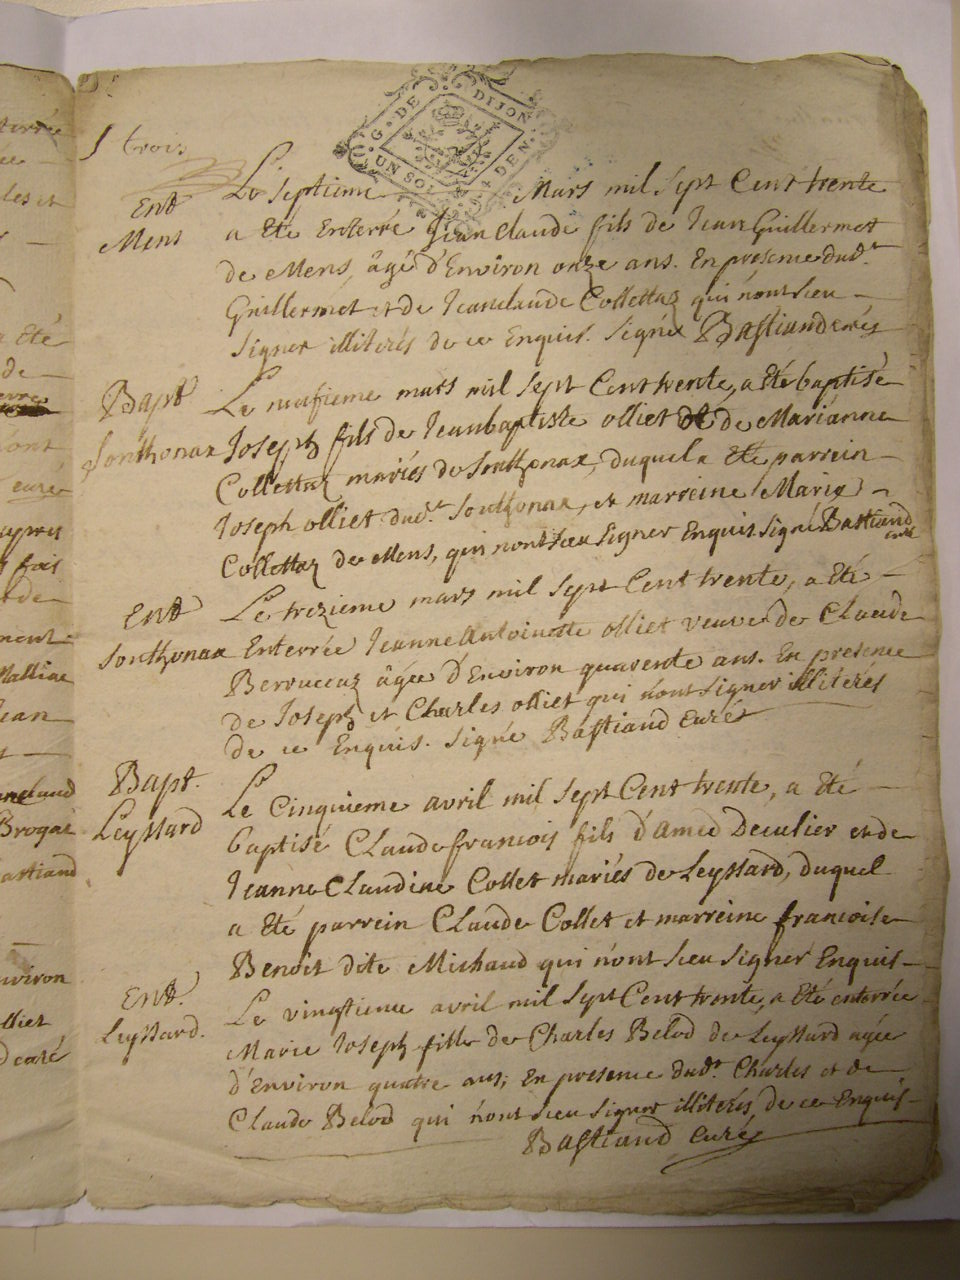 trois
G. DE DIJON
UN SOL
DEN.
Ent
Mens
Le septieme Mars mil sept Cent trente
a Eté Enterré Jean Claude fils de Jean Guillermet
de Mens, âgé d'Environ onze ans. En presence dudt
Guillermet et de Jeanclaude Collettaz qui n'ont sceu
signer illiterés de ce Enquis. signé Bastiand curé
Bapt
Sonthonax
Le neufieme mars mil sept Cent trente, a Eté baptisé
Joseph fils de Jeanbaptiste olliet de Marianne
Collettaz mariés de Sonthonax, duquel a Eté parrein
Joseph olliet dudt Sonthonax, et marreine Marie
Collettaz de Mens, qui n'ont sceu signer Enquis signé Bastiand
curé
Ent
Sonthonax
Le trezieme mars mil sept Cent trente, a Eté
Enterrée Jeanne Antoinette olliet veuve de Claude
Berruccaz âgée d'Environ quarente ans. En presence
de Joseph et Charles olliet qui n'ont signer illiterés
de ce Enquis. signé Bastiand curé
Bapt.
Leyssard
Le Cinquieme avril mil sept Cent trente, a Eté
baptisé Claude francois fils d'amed Decusier et de
Jeanne Claudine Collet mariés de Leyssard, duquel
a Eté parrein Claude Collet et marreine francoise
Benoit dite Michaud qui n'ont sceu signer Enquis
Ent.
Leyssard.
Le vingtieme avril mil sept Cent trente, a Eté enterrée
Marie Joseph fille de Charles Belod de Leyssard agée
d'Environ quatre ans; En presence dudt Charles et de
Claude Belod qui n'ont sceu signer illiterés de ce Enquis
Bastiand curé